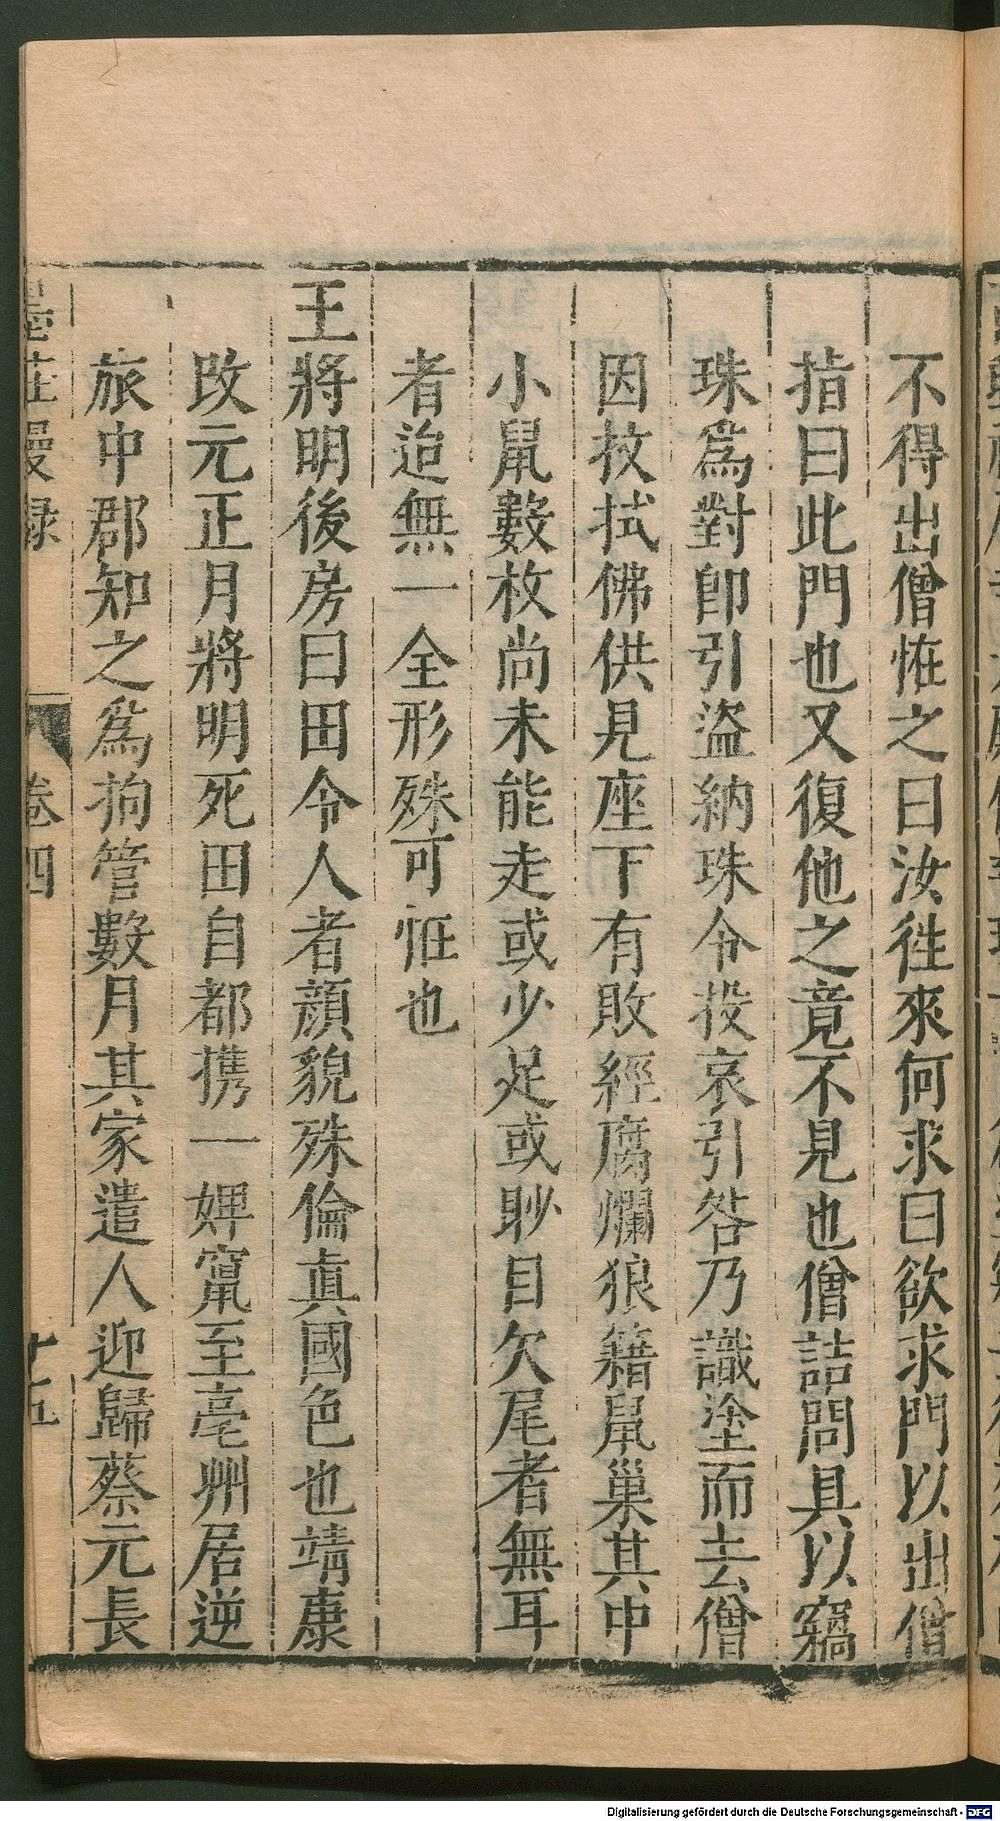 不得出僧恠之曰汝徃來何求曰欲求門以出僧
指曰此門也又復他之竟不見也僧詰問具以竊
珠爲對卽引盜納珠令投哀引咎乃識塗而去僧
因抆拭佛供見座下有敗經腐爛狼籍鼠巢其中
小鼠數枚尚未能走或少足或眇目欠尾者無耳
者迨無一全形殊可恠也
王將明後房曰田令人者顔貌殊倫眞國色也靖康
改元正月將明死田自都携一婢竄至亳州居逆
旅中郡知之爲拘管數月其家遣人迎歸蔡元長
墨莊漫録 卷四 十五
Digitalisierung gefördert durch die Deutsche Forschungsgemeinschaft - DFG